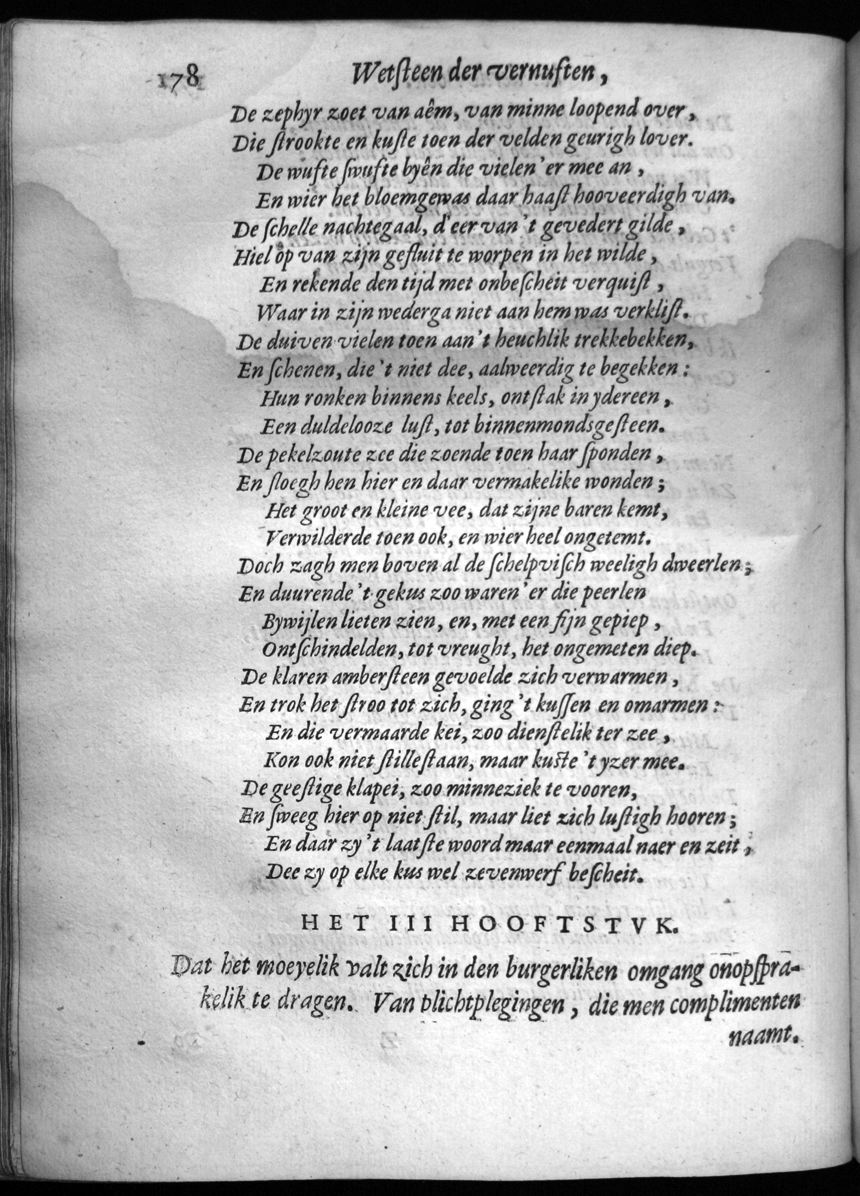 178 Wetſteen der vernuften,
De zephyr zoet van aêm, van minne loopend over,
Die ſtrookte en kuſte toen der velden geurigh lover.
De wufte ſwufte byên die vielen 'er mee an,
En wier het bloemgewas daar haaſt hooveerdigh van.
De ſchelle nachtegaal, d'eer van 't gevedert gilde,
Hiel op van zijn gefluit te worpen in het wilde,
En rekende den tijd met onbeſcheit verquiſt,
Waar in zijn wederga niet aan hem was verkliſt.
De duiven vielen toen aan 't heuchlik trekkebekken,
En ſchenen, die 't niet dee, aalweerdig te begekken:
Hun ronken binnens keels, ontſtak in ydereen,
Een duldelooze luſt, tot binnenmondsgeſteen.
De pekelzoute zee die zoende toen haar ſponden,
En ſloegh hen hier en daar vermakelike wonden;
Het groot en kleine vee, dat zijne baren kemt,
Verwilderde toen ook, en wier heel ongetemt.
Doch zagh men boven al de ſchelpviſch weeligh dweerlen;
En duurende 't gekus zoo waren 'er die peerlen
Bywijlen lieten zien, en, met een fijn gepiep,
Ontſchindelden, tot vreught, het ongemeten diep.
De klaren amberſteen gevoelde zich verwarmen,
En trok het ſtroo tot zich, ging 't kuſſen en omarmen:
En die vermaarde kei, zoo dienſtelik ter zee,
Kon ook niet ſtilleſtaan, maar kuſte 't yzer mee.
De geeſtige klapei, zoo minneziek te vooren,
En ſweeg hier op niet ſtil, maar liet zich luſtigh hooren;
En daar zy 't laatſte woord maar eenmaal naer en zeit,
Dee zy op elke kus wel zevenwerf beſcheit.
HET III HOOFTSTVK.
Dat het moeyelik valt zich in den burgerliken omgang onopſpra-
kelik te dragen. Van plichtplegingen, die men complimenten
naamt.